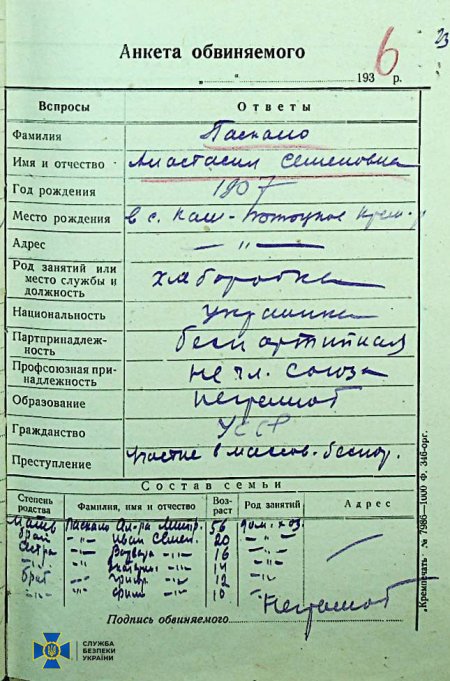 23
Анкета обвиняемого
„ “ 1936 г.
Вопросы Ответы
Фамилия Паскало
Имя и отчество Анастасия Семеновна
Год рождения 1907
Место рождения в с. Каш-
Адрес — " —
Род занятий или
место службы и
должность хлеборобка
Национальность украинка
Партпринадлеж-
ность беспартийная
Профсоюзная при-
надлежность не чл. союза
Образование неграмот
Гражданство УССР
Преступление частие в массов. беспор.
Состав семьи
Степень родства Фамилия, имя и отчество Возраст Род занятий Адрес
Мать Паскало Митр. 56 дом. хоз.
брат -"- Иван Семен. 20 -"-
сестра -"- -"- 16 -"-
-"- -"- -"- 14 -"-
брат -"- -"- 12 -"-
-"- -"- -"- 10 -"-
Неграмот
Подпись обвиняемого
„Кремпечать“. № 7986—1000 Ф. 346-орг.
СЛУЖБА
БЕЗПЕКИ
УКРАЇНИ